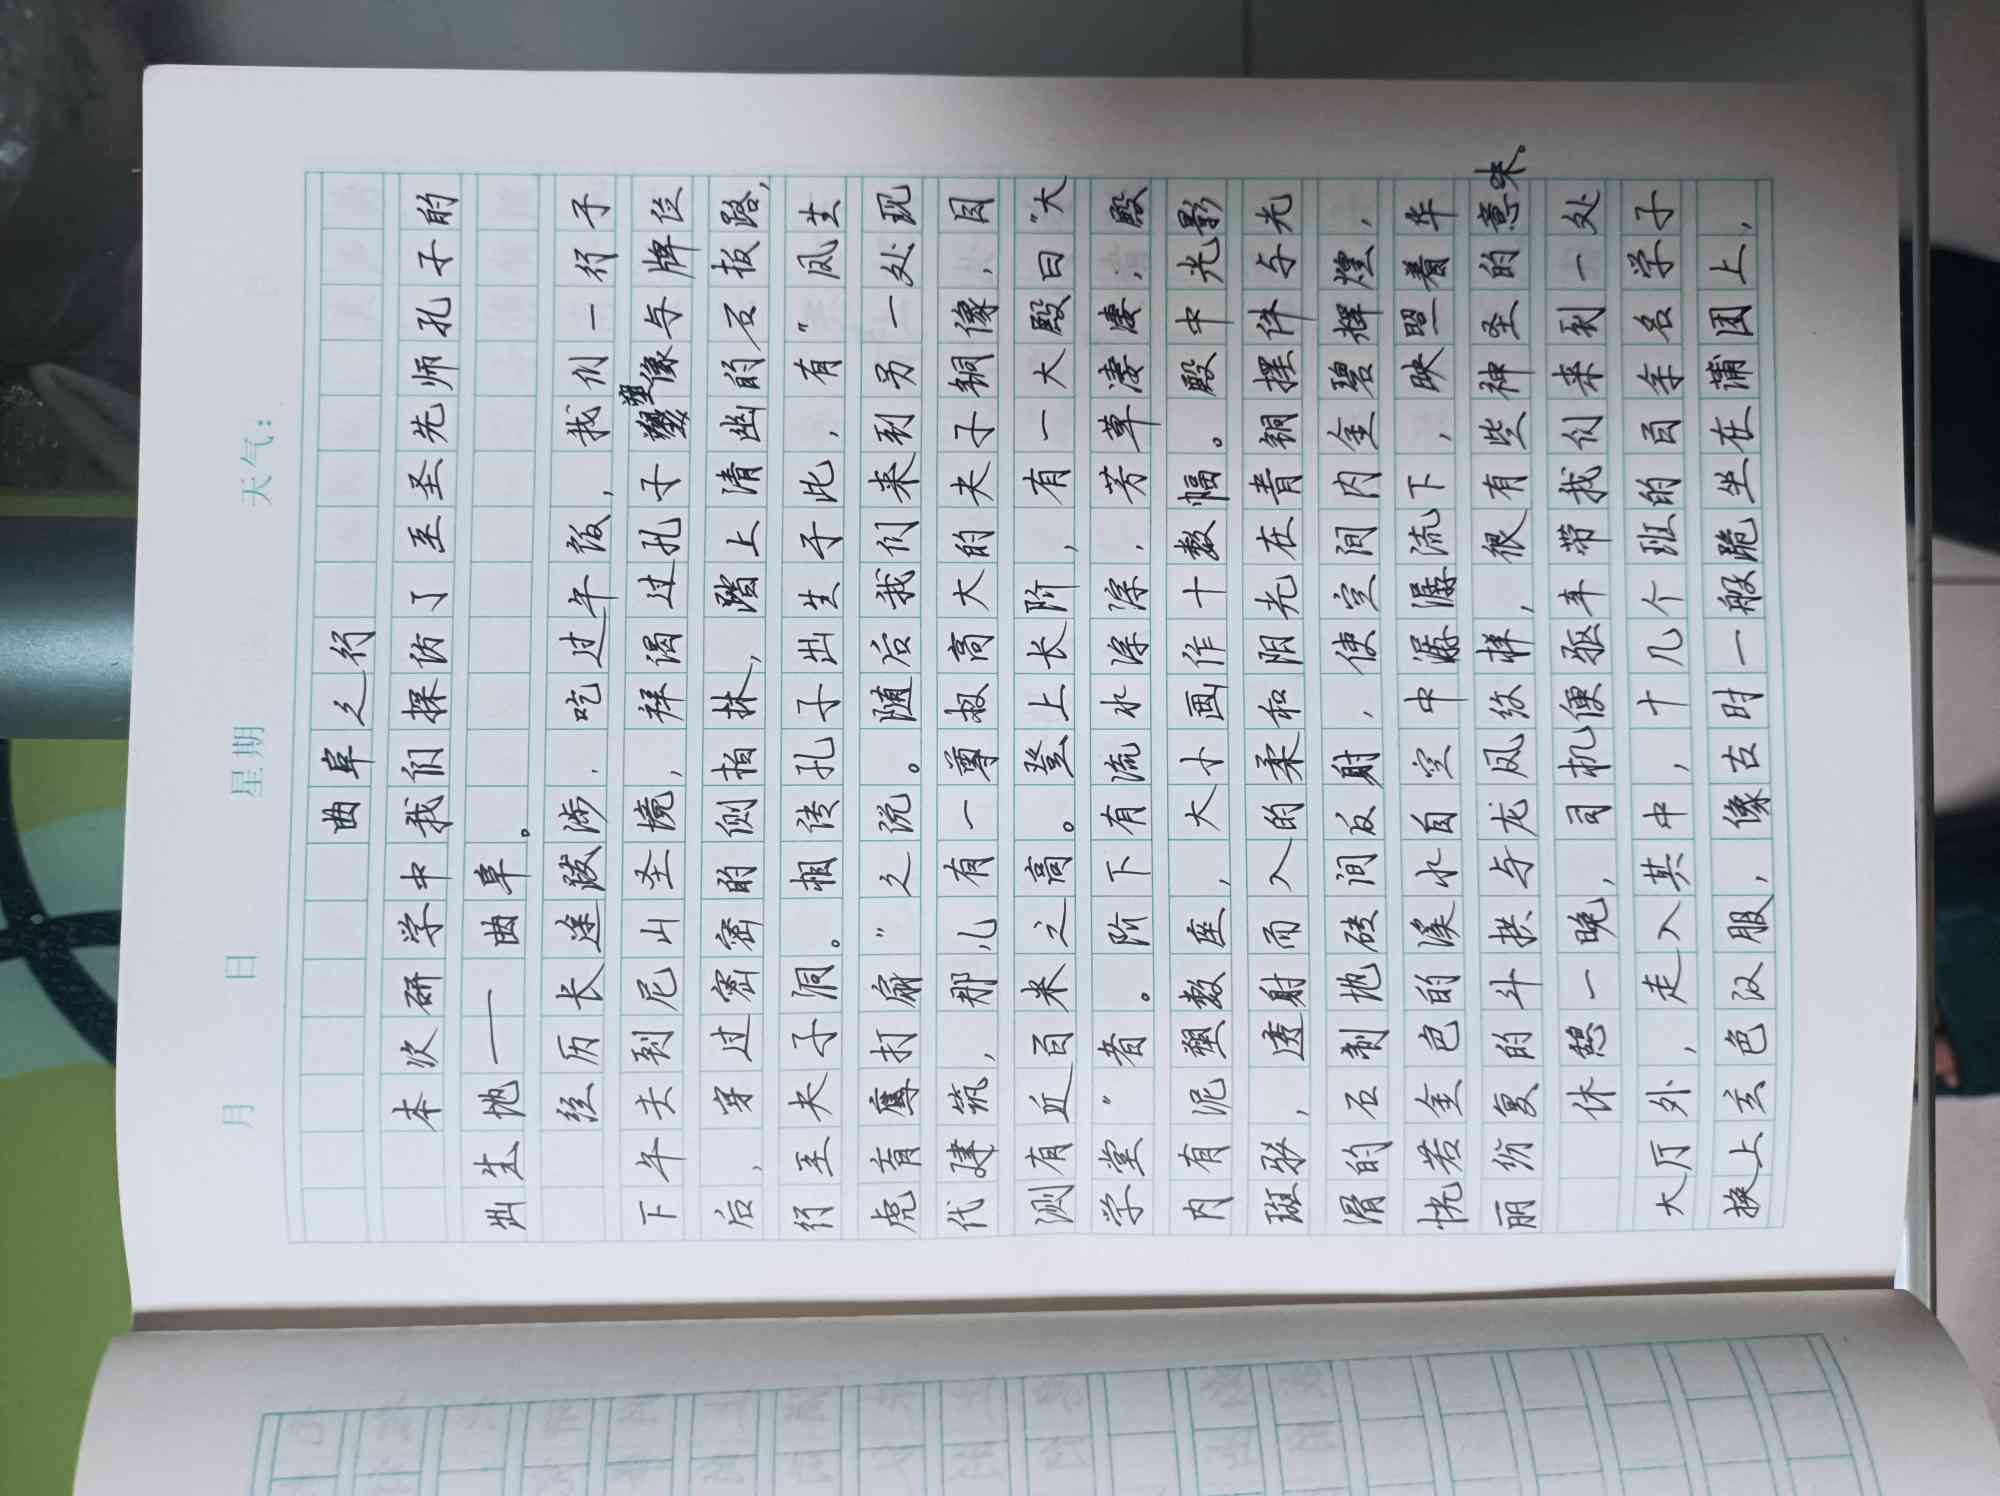 月 日 星期 天气：
曲阜之行
本次研学中我们探访了至圣先师孔子的
出生地——曲阜。
经历长途跋涉，吃过午饭，我们一行于
下午去到尼山圣境，拜谒过孔子塑像与牌位
后，穿过密密的侧柏林，踏上清幽的石板路，
行至夫子洞。相传孔子出生于此，有“凤生
虎育鹰打扇”之说。随后我们来到另一处现
代建筑，那儿有一尊极高大的夫子铜像，目
测有近百米之高。登上长阶，有一大殿曰“大
学堂”者。阶下有流水淙淙，芳草凄凄，殿
内有泥塑数座，大小画作十数幅。殿中光影
斑驳，透射而入的柔和阳光在青铜摆件与光
滑的石制地砖间反射，使空间内金碧辉煌，
恍若金色的溪水自空中潺潺流下，映照着华
丽纷复的斗拱与龙凤纹样，很有些神圣的意味。
休憩一晚，司机便驱车带我们来到一处
大厅外，走入其中，十几个班的百余名学子
换上玄色汉服，像古时一般跪坐在蒲团上，